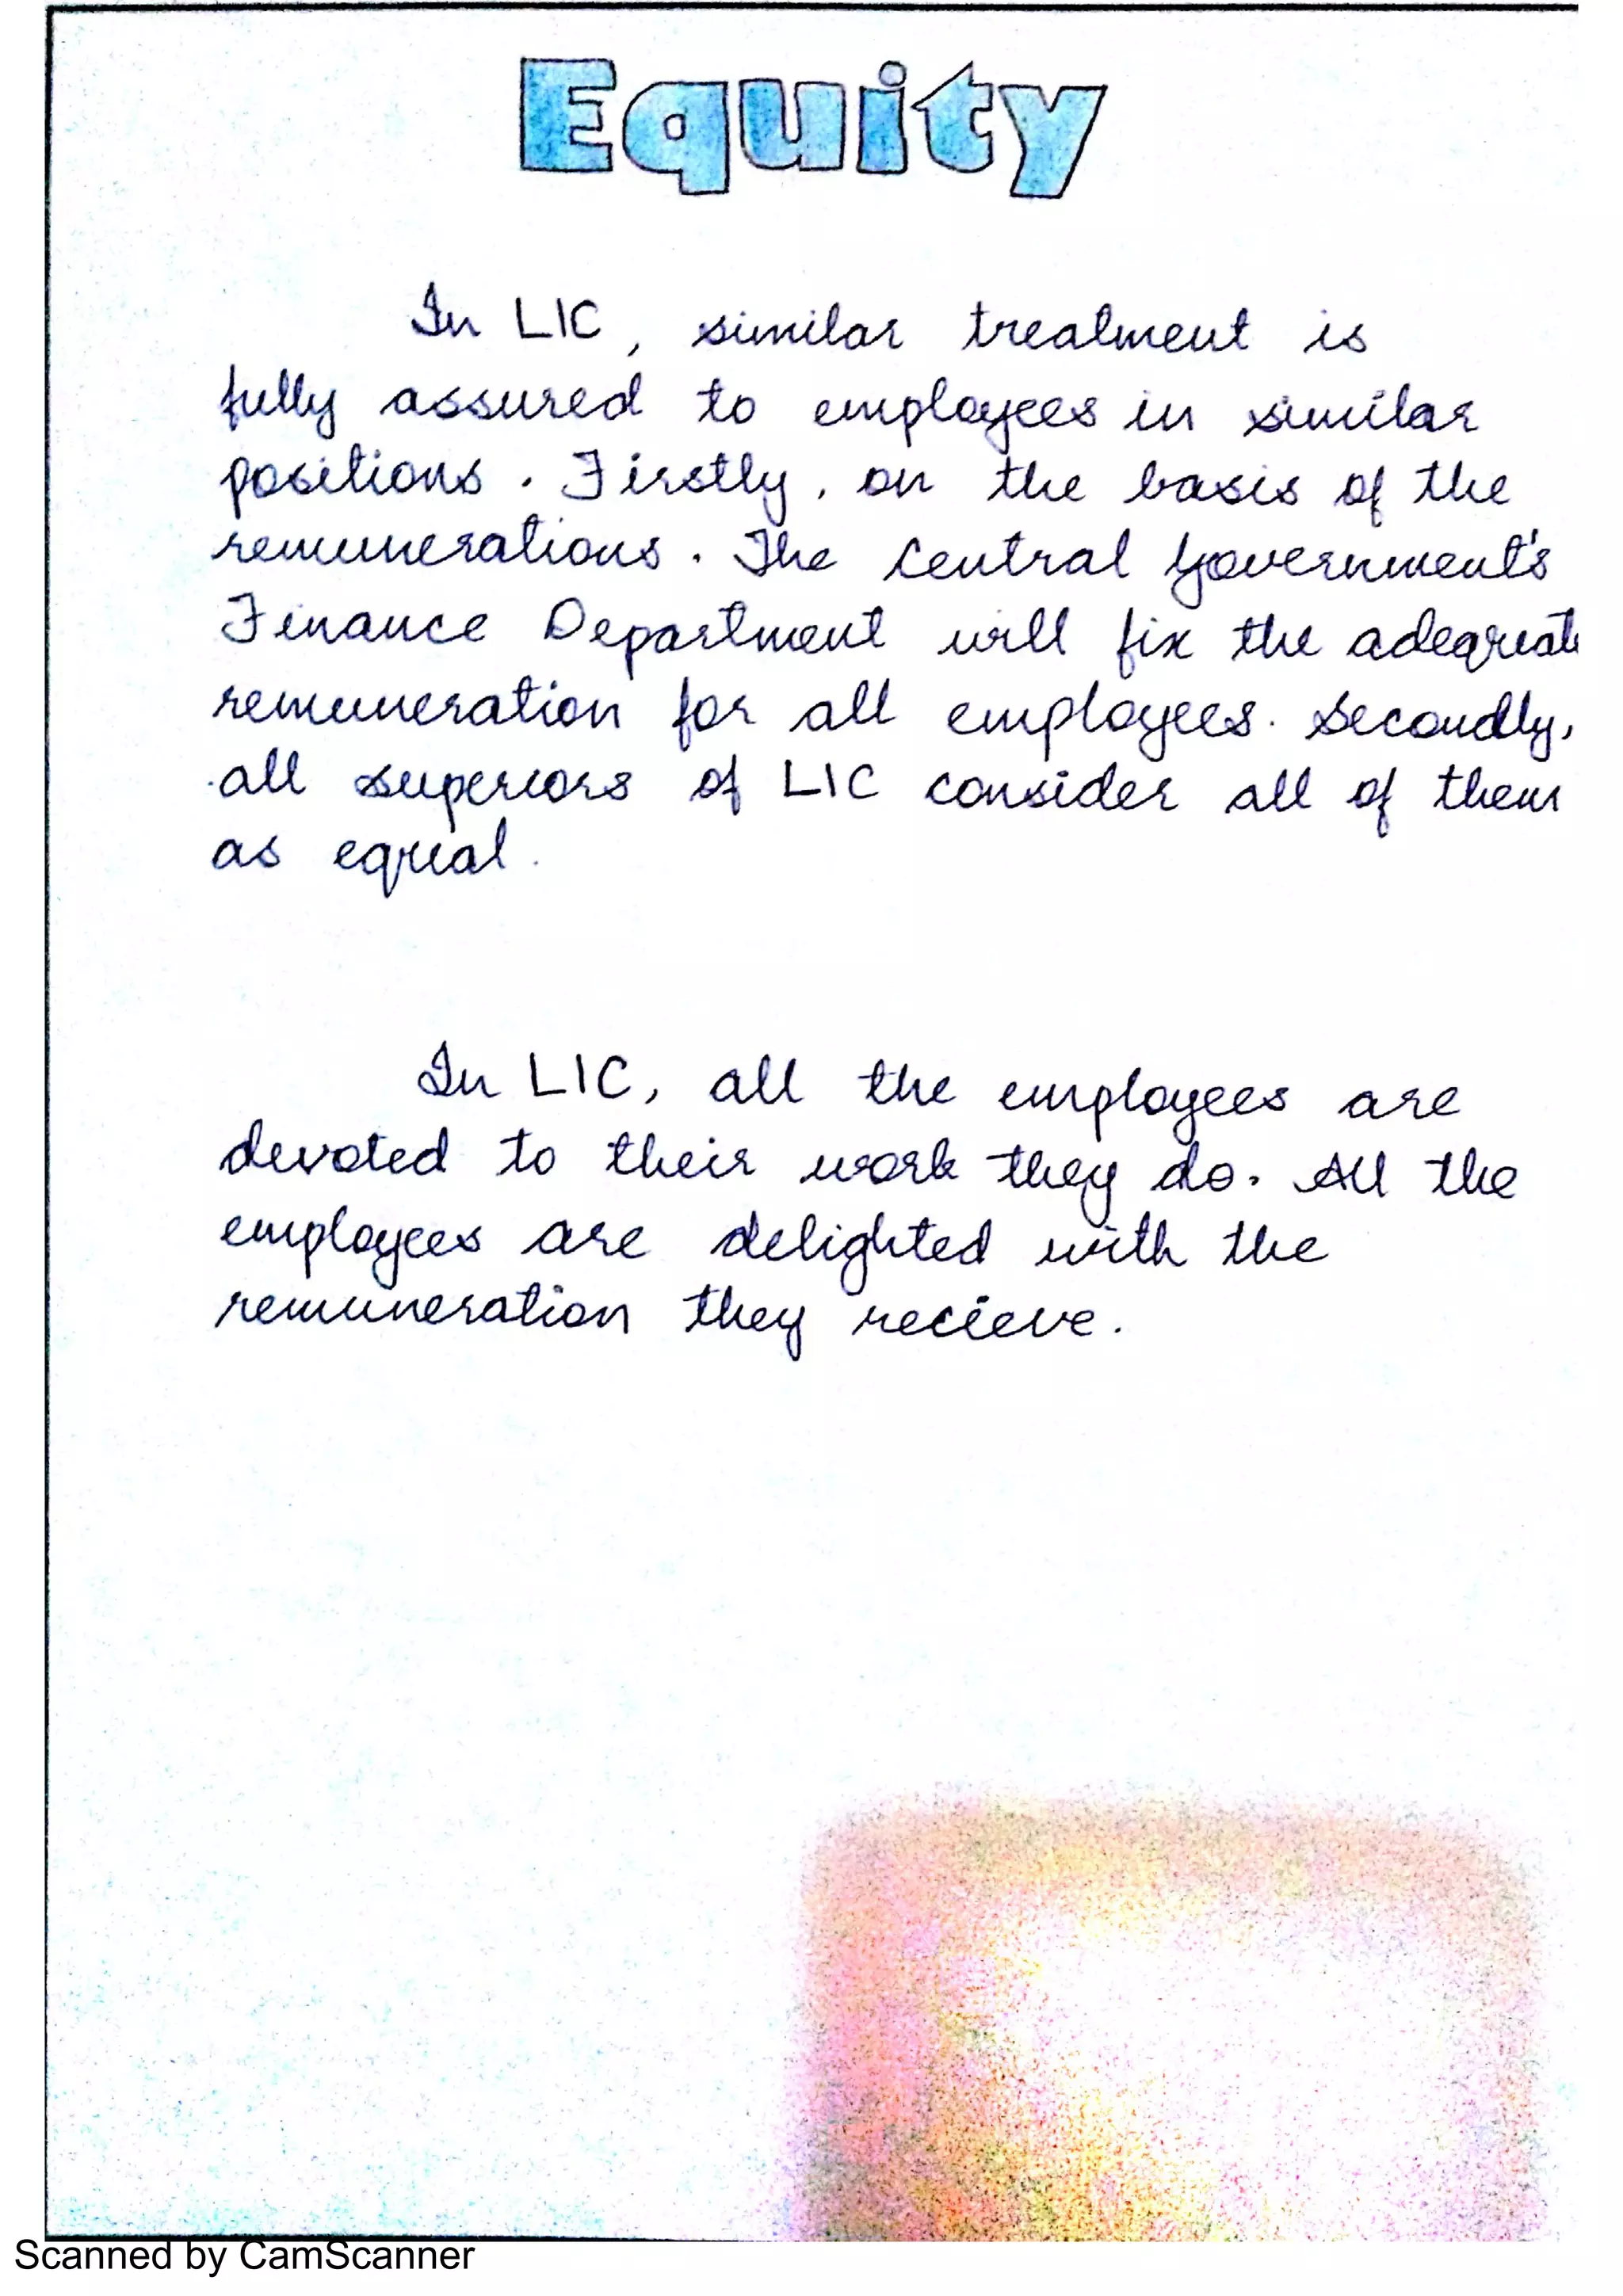 Equity
In LIC, similar treatment is
fully assured to employees in similar
positions. Firstly, on the basis of the
remunerations. The Central Government's
Finance Department will fix the adequate
remuneration for all employees. Secondly,
all superiors of LIC consider all of them
as equal.
In LIC, all the employees are
devoted to their work they do. All the
employees are delighted with the
remuneration they recieve.
Scanned by CamScanner